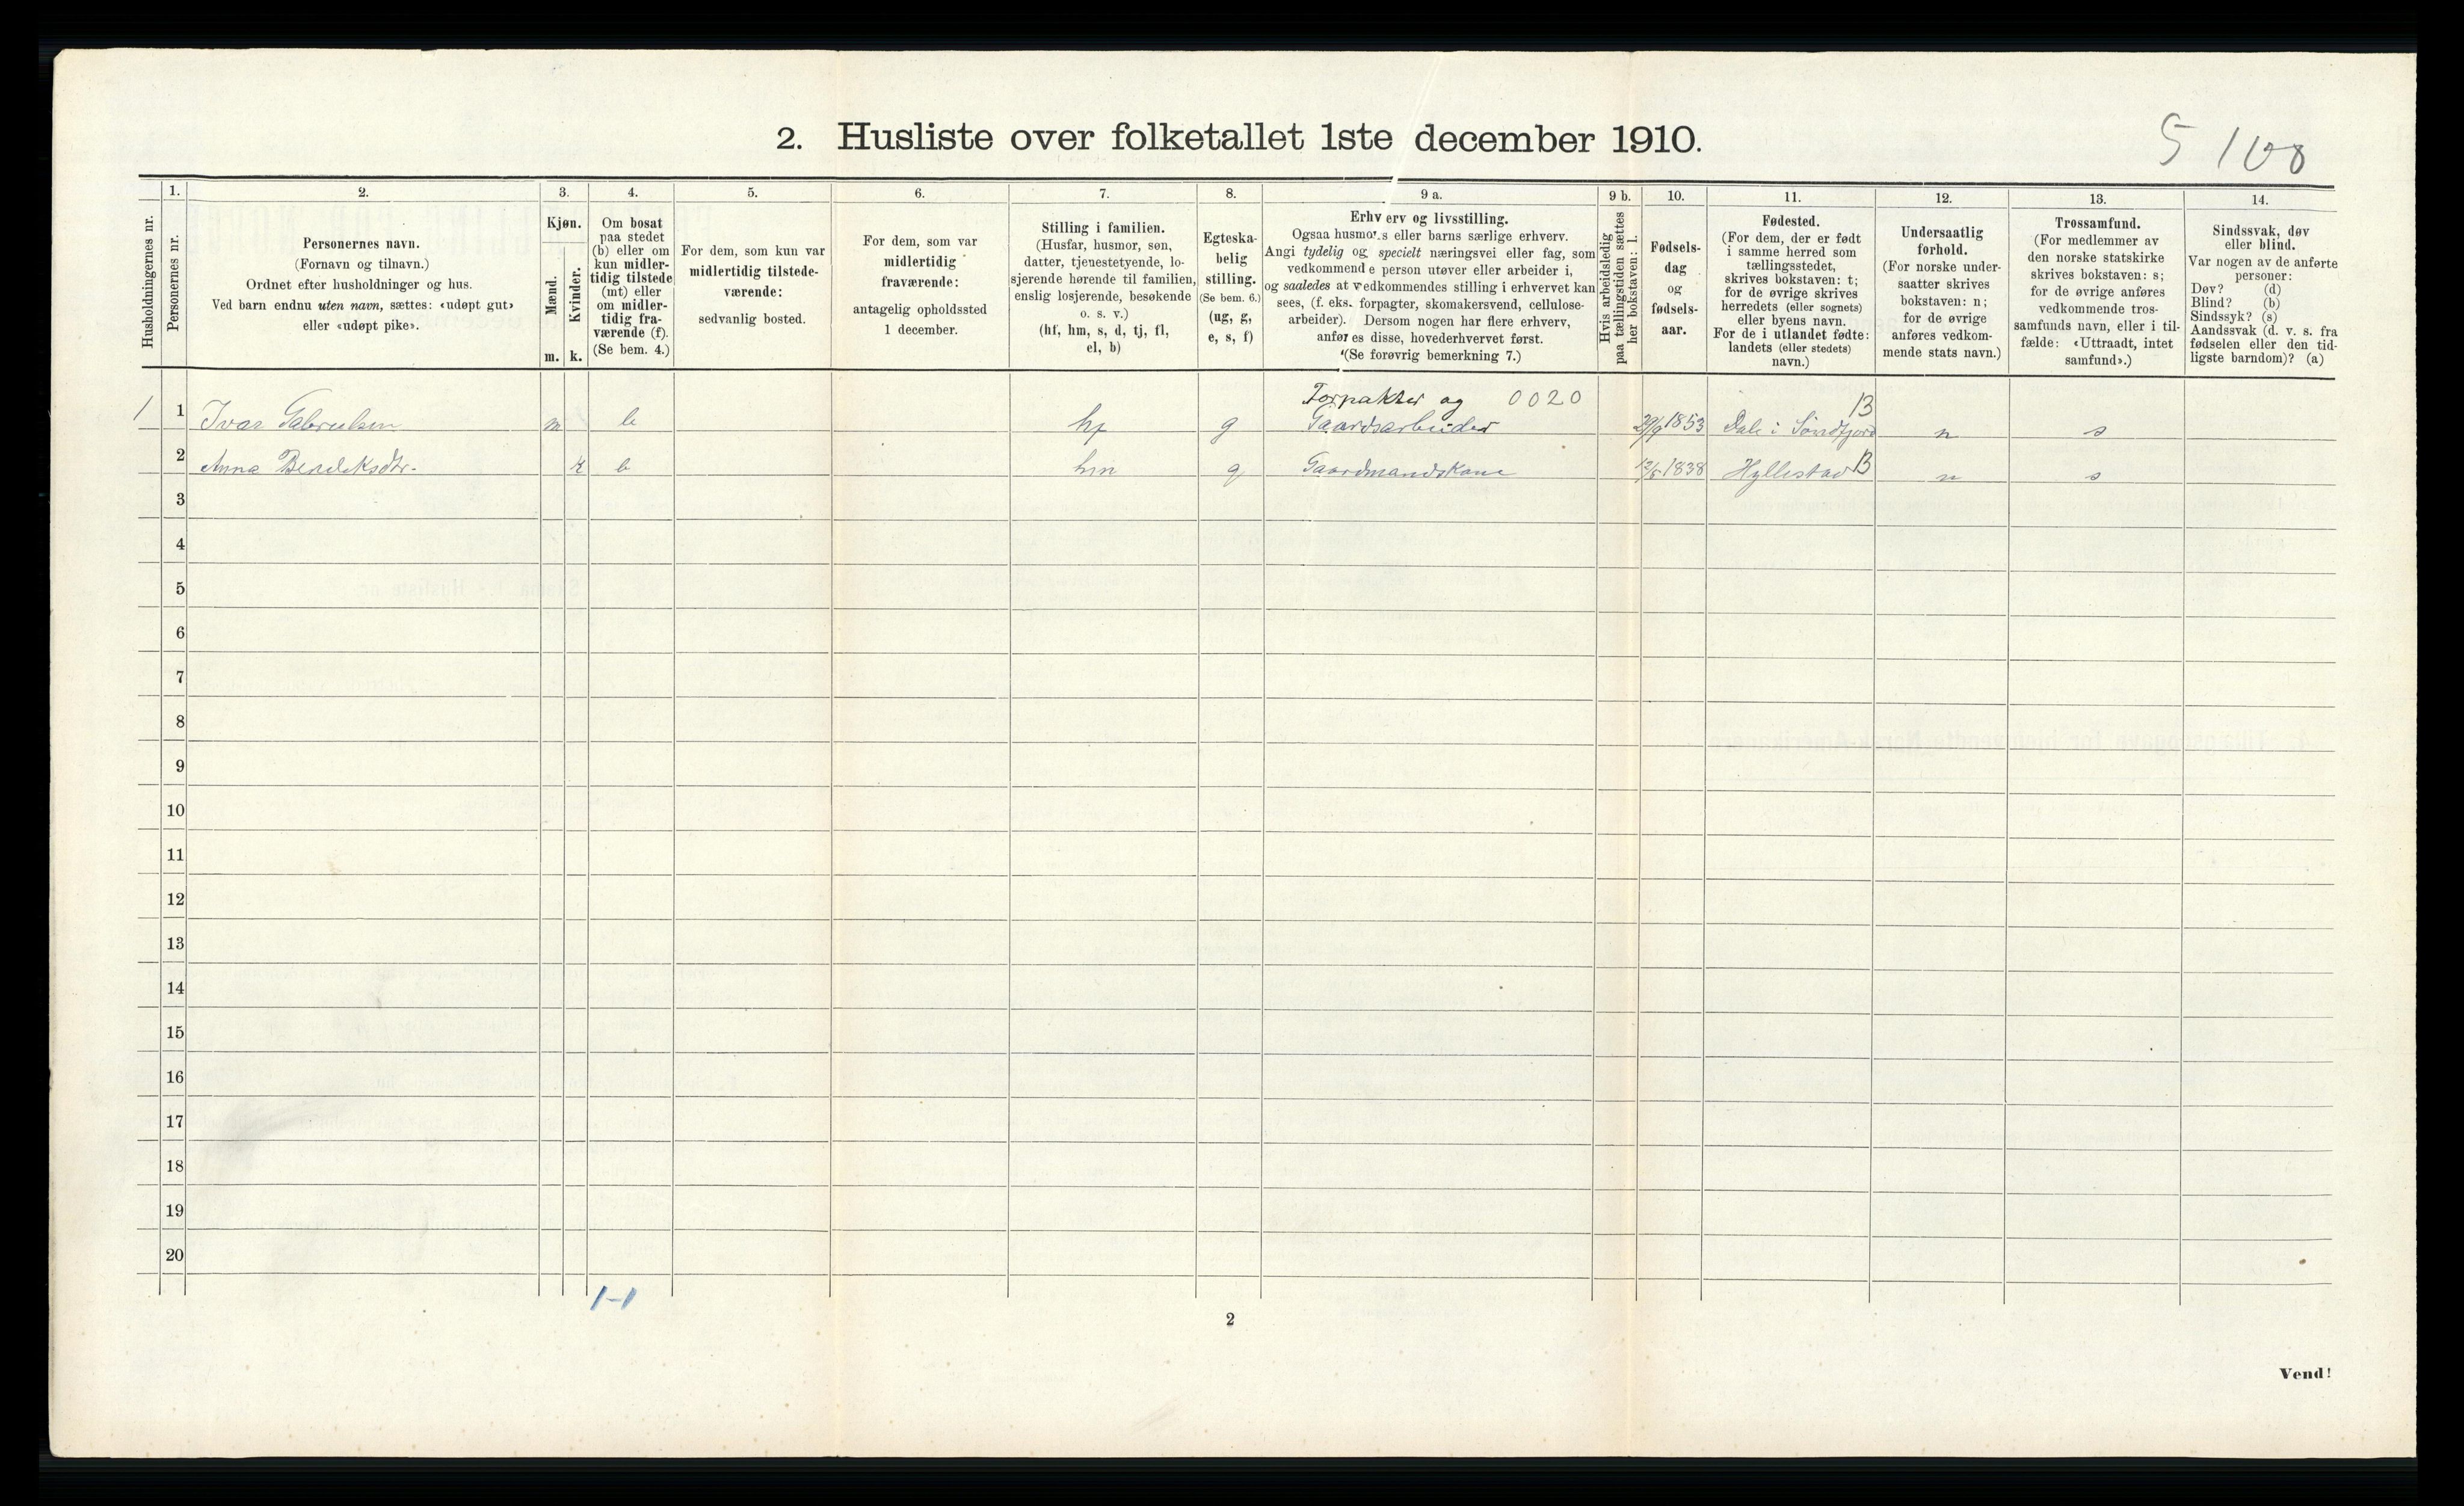 2. Husliste over folketallet 1ste december 1910.
5 108
Husholdningernes nr.
1.
Personernes nr.
2.
Personernes navn.
(Fornavn og tilnavn.)
Ordnet efter husholdninger og hus.
Ved barn endnu uten navn, sættes: «udøpt gut»
eller «udøpt pike».
3.
Kjøn.
Mænd.
Kvinder.
m. k.
4.
Om bosat
paa stedet
(b) eller om
kun midler-
tidig tilstede
(mt) eller
om midler-
tidig fra-
værende (f).
(Se bem. 4.)
5.
For dem, som kun var
midlertidig tilstede-
værende:
sedvanlig bosted.
6.
For dem, som var
midlertidig
fraværende:
antagelig opholdssted
1 december.
7.
Stilling i familien.
(Husfar, husmor, søn,
datter, tjenestetyende, lo-
sjerende hørende til familien,
enslig losjerende, besøkende
o. s. v.)
(hf, hm, s, d, tj, fl,
el, b)
8.
Egteska-
belig
stilling.
(Se bem. 6.)
(ug, g,
e, s, f)
9 a.
Erhverv og livsstilling.
Ogsaa husmors eller barns særlige erhverv.
Angi tydelig og specielt næringsvei eller fag, som
vedkommende person utøver eller arbeider i,
og saaledes at vedkommendes stilling i erhvervet kan
sees, (f. eks. forpagter, skomakersvend, cellulose-
arbeider). Dersom nogen har flere erhverv,
anføres disse, hovederhvervet først.
(Se forøvrig bemerkning 7.)
9 b.
Hvis arbeidsledig
paa tællingstiden sættes
her bokstaven: l.
10.
Fødsels-
dag
og
fødsels-
aar.
11.
Fødested.
(For dem, der er født
i samme herred som
tællingsstedet,
skrives bokstaven: t;
for de øvrige skrives
herredets (eller sognets)
eller byens navn.
For de i utlandet fødte:
landets (eller stedets)
navn.)
12.
Undersaatlig
forhold.
(For norske under-
saatter skrives
bokstaven: n;
for de øvrige
anføres vedkom-
mende stats navn.)
13.
Trossamfund.
(For medlemmer av
den norske statskirke
skrives bokstaven: s;
for de øvrige anføres
vedkommende tros-
samfunds navn, eller i til-
fælde: «Uttraadt, intet
samfund».)
14.
Sindssvak, døv
eller blind.
Var nogen av de anførte
personer:
Døv? (d)
Blind? (b)
Sindssyk? (s)
Aandssvak (d. v. s. fra
fødselen eller den tid-
ligste barndom)? (a)
Forpakter og 0020
1 1 Ivar Gabrielsen m b hf g Gaardsarbeider 29/9 1853 Dale i Søndfjord B n s
2 Anna Bendeksdtr. k b hm g Gaardmandskone 12/5 1838 Hyllestad B n s
3
4
5
6
7
8
9
10
11
12
13
14
15
16
17
18
19
20
1-1
2
Vend!